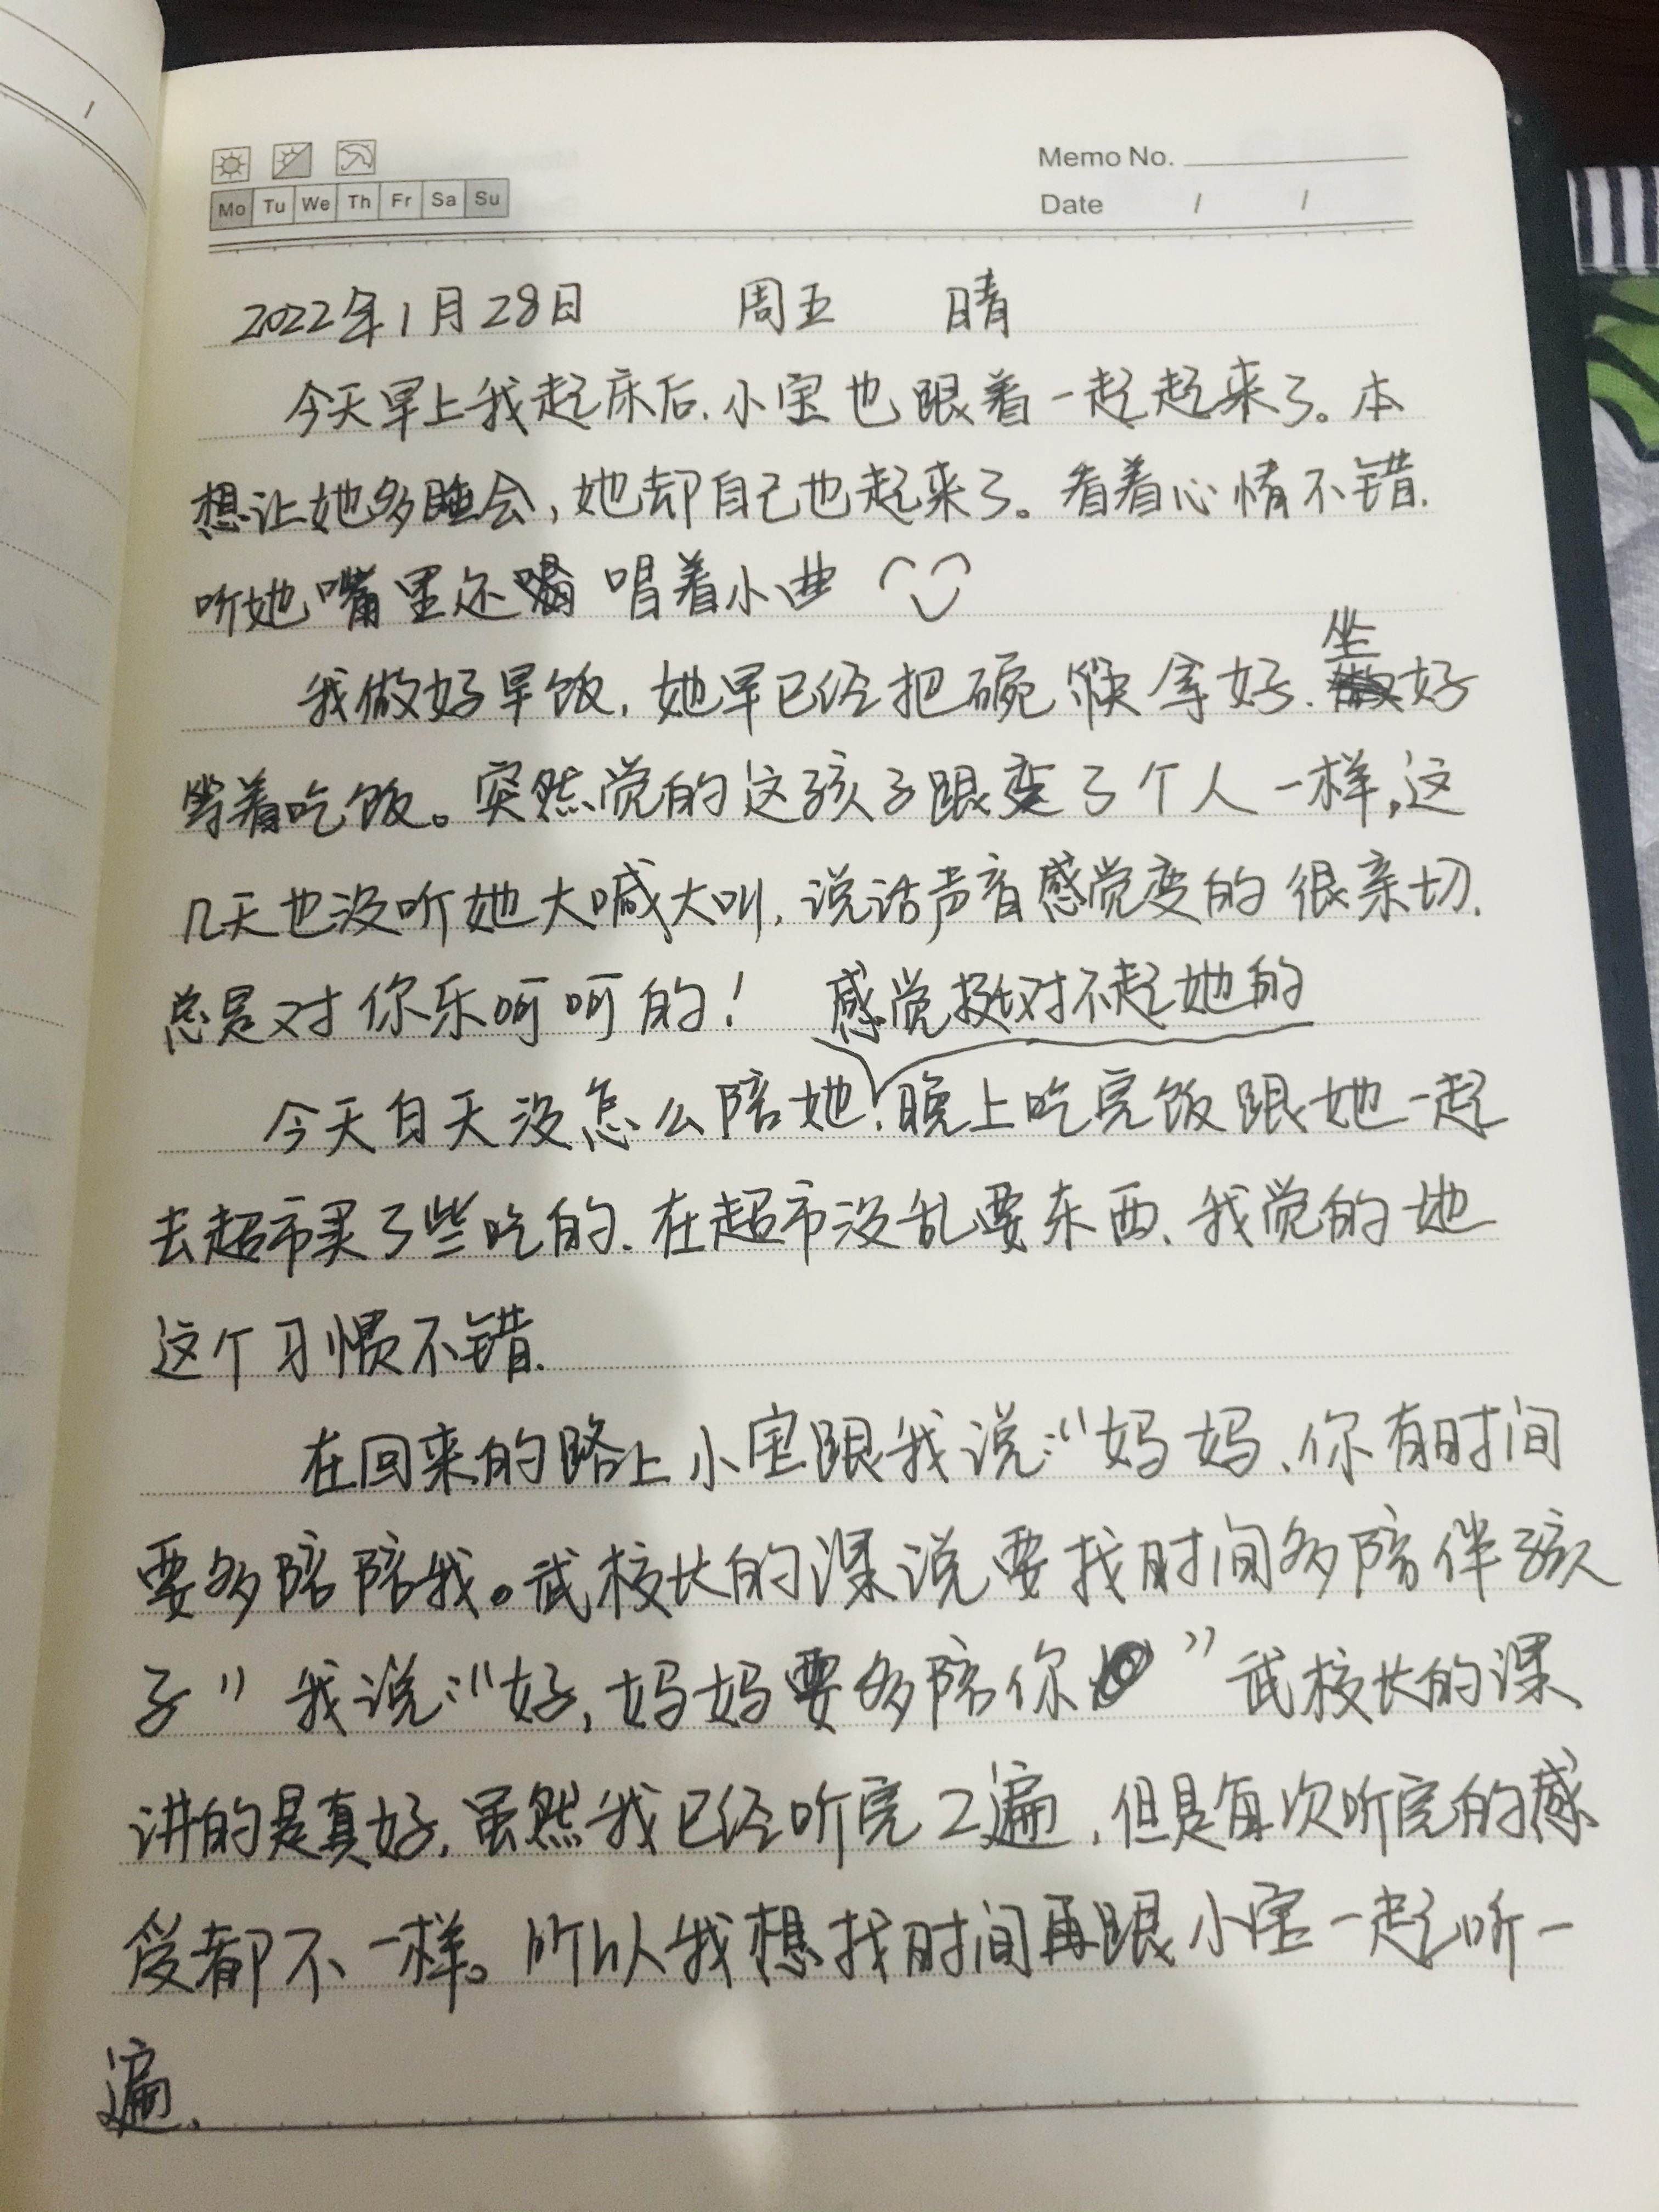 Memo No.
Mo Tu We Th Fr Sa Su
Date / /
2022年1月28日 周五 晴
今天早上我起床后.小宝也跟着一起起来了。本
想让她多睡会,她却自己也起来了。看着心情不错.
听她嘴里还唱着小曲
我做好早饭,她早已经把碗筷拿好.坐好
等着吃饭。突然觉的这孩子跟变了个人一样,这
几天也没听她大喊大叫,说话声音感觉变的很亲切.
总是对你乐呵呵的!
感觉挺对不起她的
今天白天没怎么陪她.晚上吃完饭跟她一起
去超市买了些吃的.在超市没乱要东西、我觉的她
这个习惯不错.
在回来的路上小宝跟我说:“妈妈、你有时间
要多陪陪我。武校长的课说要找时间多陪伴孩
子”我说:“好,妈妈要多陪你”武校长的课
讲的是真好,虽然我已经听完2遍,但是每次听完的感
受都不一样。所以我想找时间再跟小宝一起听一
遍.